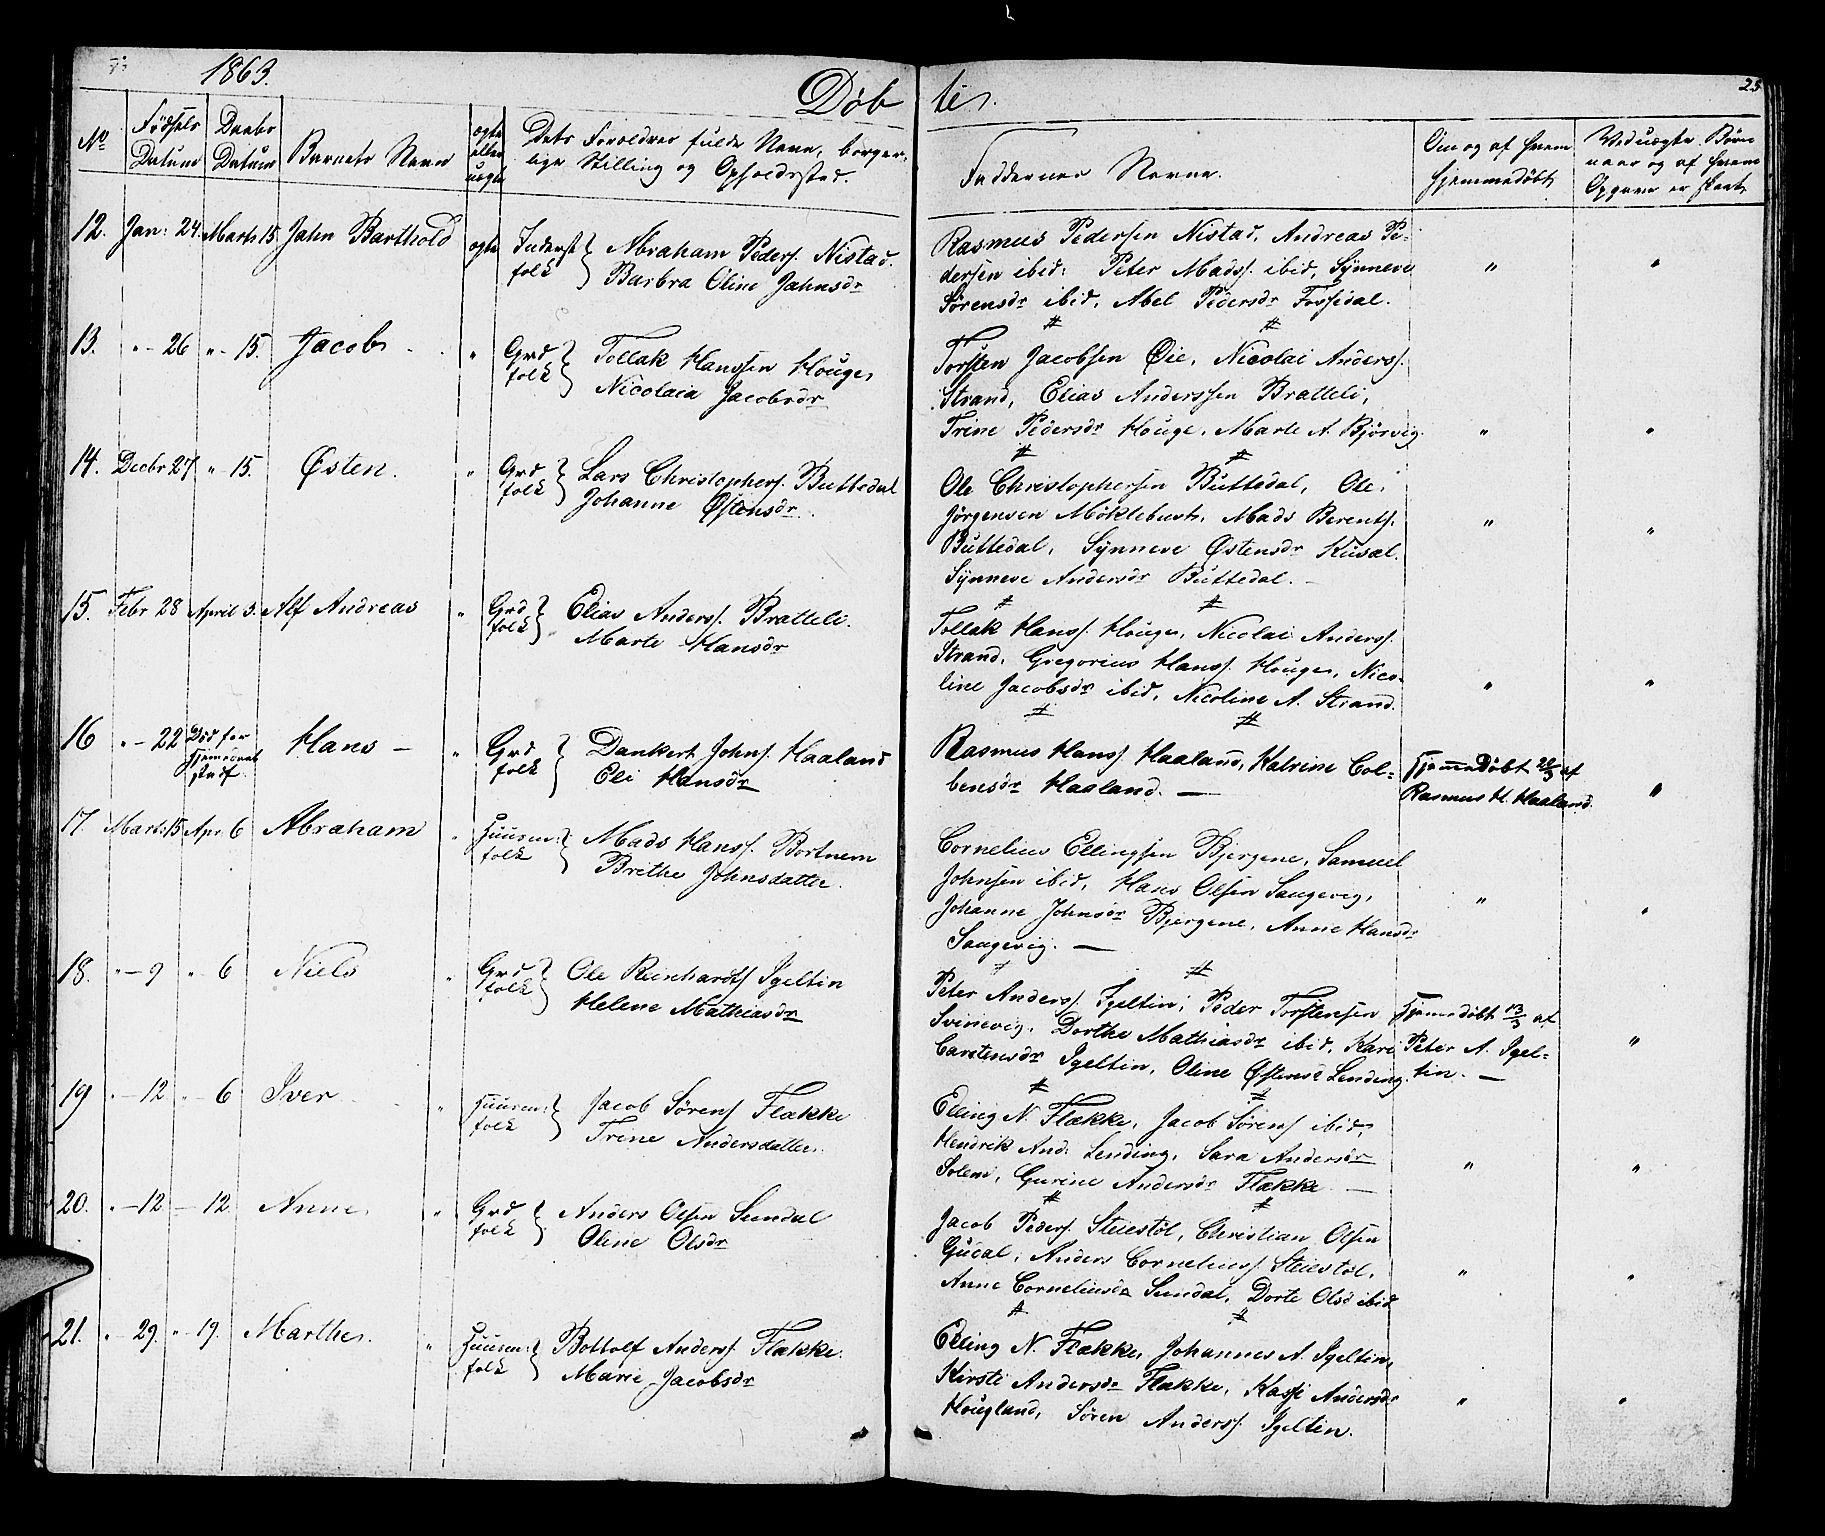 1863.
Døb
te.
25
No
Fødsels
Datum
Daabs
Datum
Barnets Navn
ægte
eller
uægte
Dets Foreldres fulde Navn, borger-
lige Stilling og Opholdssted.
Faddernes Navne.
Om og af hvem
hjemmedøbt
Ved uægte Børn
naar og af hvem
Opgaven er skeet
12. Jan: 24. Marts 15 Jahn Barthold ægte Inderst folk } Abraham Peders. Nistad.
Barbra Oline Jahnsdr
Rasmus Pedersen Nistad, Andreas Pe-
dersen ibid: Peter Madss. ibid, Synneve " "
Sørensdr ibid, Abel Pedersdr Forsidal.
13. " - 26 " - 15. Jacob " Grd folk } Tollak Hanssen Houge,
Nicolaia Jacobsdr
Torsten Jacobsen Øie, Nicolai Anderss.
Strand, Elias Anderssen Bratteli,
Trine Pedersdr Houge, Marte A. Bjørvig. " "
14. Decbr 27 " - 15. Østen. " Grd folk } Lars Christophers. Buttedal
Johanne Østensdr.
Ole Christophersen Buttedal, Ole
Jørgensen Møklebust, Mads Berents. " "
Buttedal, Synneve Østensdr Kusal.
Synneve Andersdr Buttedal. –
15. Febr 28 April 5. Alf Andreas " Grd folk } Elias Anders. Bratteli.
Marte Hansdr
Tollak Hanss. Houge, Nicolai Anderss.
Strand, Gregorius Hanss. Houge, Nico-
line Jacobsdr ibid, Nicoline A. Strand. " "
16 " - 22 Død før Hans – " Grd folk } Dankert Johns. Haaland
Eli Hansdr
Rasmus Hanss. Haaland, Katrine Col- Hjemmedøbt af
bensdr Haaland. – Rasmus H. Haaland. "
17. Mart: 15 Apr. 6 Abraham " Huusm: folk } Mads Hanss. Bortnem
Brithe Johnsdatter.
Cornelius Ellingsen Bjergene, Samuel
Johnsen ibid, Hans Olsen Saugevig, " "
Johanne Johnsdr Bjergene, Anne Hansdr
Saugevig. –
18. " - 9 " - 6 Niels " Grd folk } Ole Reinhardts Igeltin
Helene Mathiasdr
Peter Anderss. Igeltin, Peder Torstensen Hjemmedøbt 13/3 af
Svinevig, Dorthe Mathiasdr ibid, Kari Peter A. Igel- "
Carstensdr Igeltin, Oline Østensd Lending. tin. –
19 " - 12 " - 6 Iver " Huusm: folk } Jacob Sørens. Flække
Trine Andersdatter.
Elling N. Flække, Jacob Sørens. ibid,
Hendrik And: Lending, Sara Andersdr " "
Solem, Gurine Andersdr Flække. –
20. " - 12 – 12 Anne " Grd folk } Anders Olsen Sundal
Oline Olsdr
Jacob Peders. Steiestøl, Christian Olsen
Gudal, Anders Corneliuss. Steiestøl, " "
Anne Corneliusdr Sundal, Dorte Olsd ibid
21. " - 29. " - 19. Marthe. " Huusm: folk } Bottolf Anders. Flække.
Marie Jacobsdr
Elling N. Flække, Johannes A. Igeltin,
Kirsti Andersdr Flække, Kasji Andersdr " "
Hougland, Søren Anderss. Igeltin.